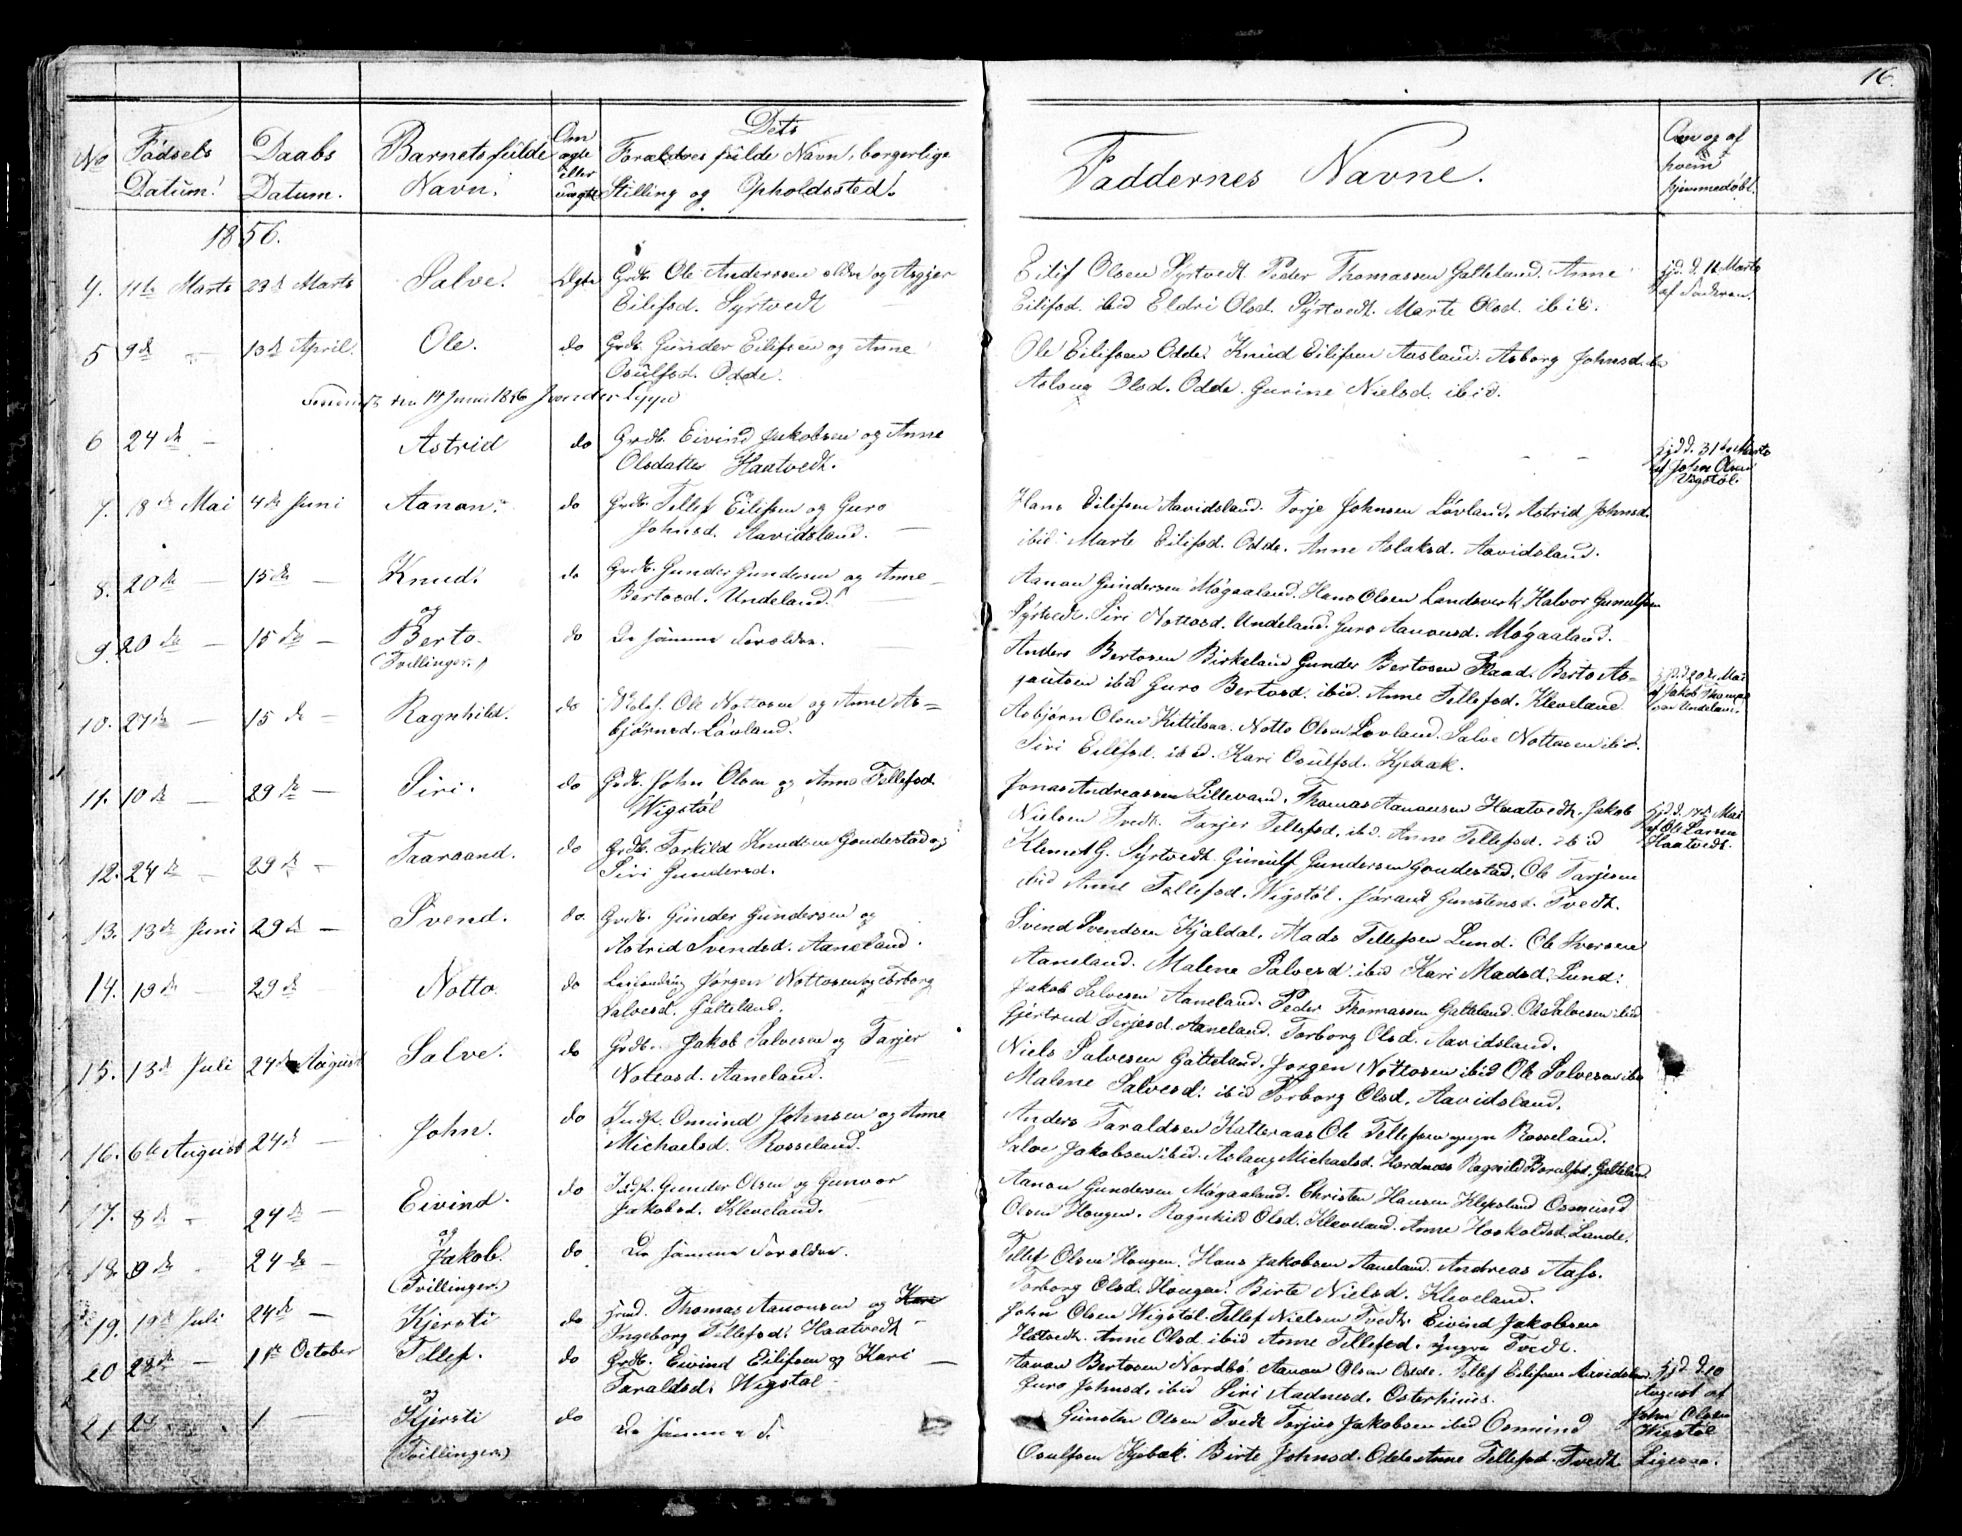 16.
No Fødsels Datum. Daabs Datum. Barnets fulde Navn. Om ægte eller uægte Dets Forældres fulde Navn, borgerlige Stilling og Opholdssted. Faddernes Navne. Om og af hvem hjemmedøbt.
1856.
4. 11te Marts 23d Marts Salve. Ægte Grdb. Ole Anderssen ældre og Asgjer Eilefsd. Syrtvedt
Eilif Olsen Syrtvedt. Peder Thomassen Galteland. Anne
Eilefsd. ibid Eldri Olsd. Syrtvedt. Marte Olsd. ibid.
hjd. d. 11 Marts af Faderen.
5 9d 13d April. Ole. do Grdb. Gunder Eilefsen og Anne Osulfsd. Odde.
Ole Eilifsen Odde. Knud Eilifsen Aasland. Asborg Johnsd.
Aslaug Olsd. Odde. Gurine Nielsd. ibid.
6 24de Astrid do Grdb. Eivind Jakobsen og Anne Olsdatter Haatvedt.
hjd d. 31te Marts af John Olsen Vigstøl
7. 18de Mai 4de Juni Aanon. do Grdb. Tellef Eilifsen og Guro Johnsd. Aavidsland.
Hans Eilefsen Aavidsland. Torje Johnsen Løvland. Astrid Johnsd.
ibid. Marte Eilefsd. Odde. Anne Aslaksd. Aavidsland.
8. 20de 15de Knud. do Grdb. Gunder Gundersen og Anne Bertosd. Undeland.
Aanon Gundersen Møgaaland. Hans Olsen Landsverk Halvor Gunulfsen
Syrtvedt. Siri Nottosd. Undeland. Guro Aanonsd. Møgaaland.
og
9. 20de 15de Berto. (Tvillinger.) do De samme Forældre.
Anders Bertosen Birkeland Gunder Bertosen Flaad. Berto As-
jautsen ibid Guro Bertosd. ibid. Anne Tellefsd. Kleveland
hjd. d. 20de Mai af Jakob Undeland
10. 27de 15de Ragnhild. do Ole Nottosen og Anne As-bjørnsd. Løvland.
Asbjørn Olsen Kittilsaa. Notto Olsen Løvland. Salve Nottosen ibid.
Siri Eilefsd. ibid. Kari Osulfsd. Kjebæk.
11. 10de 29de Siri. do Grdb. John Olsen og Anne Tellefsd. Wigstøl
Jonas Andreassen Lillevand. Thomas Aanonsen Haatvedt. Jakob
Nielsen Tvedt. Tarjer Tellefsd. ibid. Anne Tellefsd. ibid
hjd. d. 17de Mai af Ole Larsen Haatvedt.
12. 24de 29de Taaraand. do Grdb. Torkild Knudsen Gondestad og Siri Gundersd.
Klemet G. Syrtvedt. Gunulf Gundersen Gondestad. Ole Tarjesen
ibid Anne Tellefsd. Wigstøl. Jørand Gunstensd. Tvedt.
13. 13de Juni 29de Svend. do. Grdb. Gunder Gundersen og Astrid Svendsd. Aaneland.
Svend Svendsen Kjaldal. Mads Tellefsen Lund. Ole Iversen
Aaneland. Malene Salvesd. ibid Kari Madsd. Lund.
14. 19de 29de Notto do Jørgen Nottosen og Torborg Salvesd. Galteland.
Jakob Salvesen Aaneland. Peder Thomassen Galteland. Ole Salvesen ibid
Gjertrud Terjesd. Aaneland. Torborg Olsd. Aavidsland.
15. 13d Juli 24de August Salve. do Grdb. Jakob Salvesen og Tarjer Notosd. Aaneland.
Niels Salvesen Galteland. Jørgen Nottosen ibid Ole Salvesen ibid
Malene Salvesd. ibid Torborg Olsd. Aavidsland.
16. 6te August 24d John. do Indst. Omund Johnsen og Anne Michaelsd. Rosseland.
Anders Taraldsen Katteraas Ole Tellefsen yngre Rosseland.
Salve Jakobsen ibid. Aslaug Michaelsd. Hordnes Galteland
17. 8de 24de Eivind. do Indst. Gunder Olsen og Gunvor Jakobsd. Kleveland.
Aanon Gundersen Møgaaland. Christen Hansen Klepsland Osmund
Olsen Hougen. Ragnhild Olsd. Kleveland. Anne Hoskoldsd. Lande.
og
18. 8de 24de Jakob. (Tvillinger.) do De samme Forældre.
Tellef Olsen Hougen. Hans Jakobsen Aaneland. Andreas Aass.
Torborg Olsd. Hougen. Birte Nielsd. Kleveland.
19. 19de Juli 24de Kjersti do Thomas Aanonsen og Kari Ingeborg Tellefsd. Haatvedt
John Olsen Wigstøl. Tellef Nielsen Tvedt. Eivind Jakobsen
Hatvedt. Anne Olsd. ibid Anne Tellefsd. yngre Tvedt.
20 28de 1st October Tellef. do Grdb. Eivind Eilifsen og Kari Taraldsd. Wigstøl
Aanon Bertosen Nordbø. Aanon Olsen Odde. Tellef Eilifsen Aavidsland
Guro Johnsd. ibid Siri Aadnesd. Osterhuus.
hjd. d. 29 August af John Olsen Wigstøl
og
21 28 1 Kjersti (Tvillinger) do De samme F.
Gunsten Olsen Tvedt Torjus Jakobsen ibid Osmund
Osulfsen Kjebæk. Birte Johnsd. Odde Anne Tellefsd. Tvedt
Ligesaa.